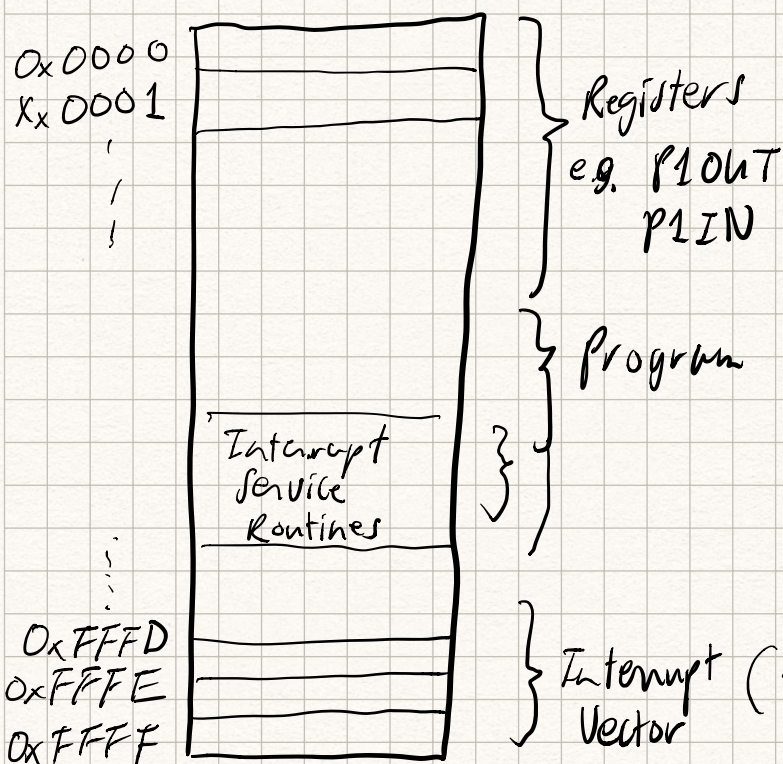 0x0000
Xx0001
Registers
e.g. P1OUT
P1IN
Program
Interrupt
Service
Routines
0xFFFD
0xFFFE
0xFFFF
Interrupt (
Vector